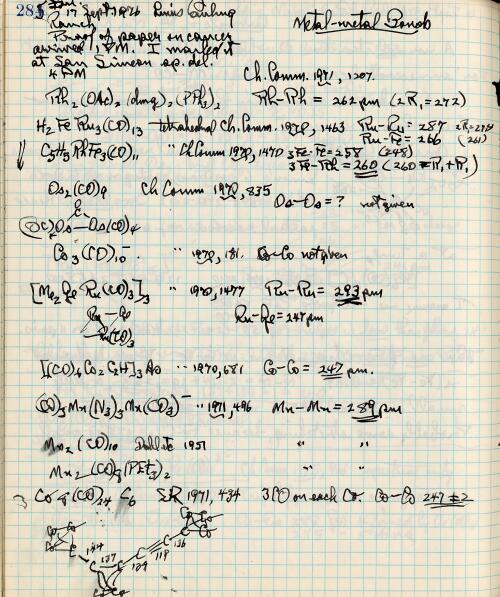 285
17 Sept 1976 Linus Pauling
Metal-metal Bonds
Ranch
Proof of paper on cancer
arrived 1 PM. I mailed it
at San Simeon sp. del.
4 PM
Ch. Comm. 1971, 1207.
Rh2(OAc)2(dmg)2(PPh3)2 Rh-Rh = 262 pm (2R1=272)
H2FeRu3(CO)13 tetrahedral Ch. Comm. 1970, 1463 Ru-Ru = 287
Ru-Fe = 266 (261)
C5H5RhFe3(CO)11 " Ch Comm 1970, 1470 3 Fe-Fe=258 (248)
3 Fe-Rh = 260 (260 = R1 + R1)
Os2(CO)9 Ch Comm 1970, 835
Os-Os = ? not given
(OC)4Os—Os(CO)4
Co3(CO)10- " 1970, 181. Co-Co not given
[Me2GeRu(CO)3]3 " 1970, 1477 Ru-Ru = 293 pm
Ru-Ge Ru-Ge = 247 pm
Ru(CO)3
[(CO)6Co2C2H]3As " 1970, 681 Co-Co = 247 pm.
(CO)3Mn(N3)3Mn(CO3)- " 1971, 496 Mn-Mn = 289 pm
Mn2(CO)10 Dahl etc 1957 " "
Mn2(CO)8(PEt3)2 " "
Co8(CO)24C6 SR 1971, 434 3CO on each Co. Co-Co 247±2
Co Co
Co C 144 C 137 C 124 C 119 C 136 C Co
Co Co